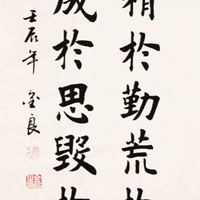 精於勤荒於
成於思毀於
壬辰年 金良